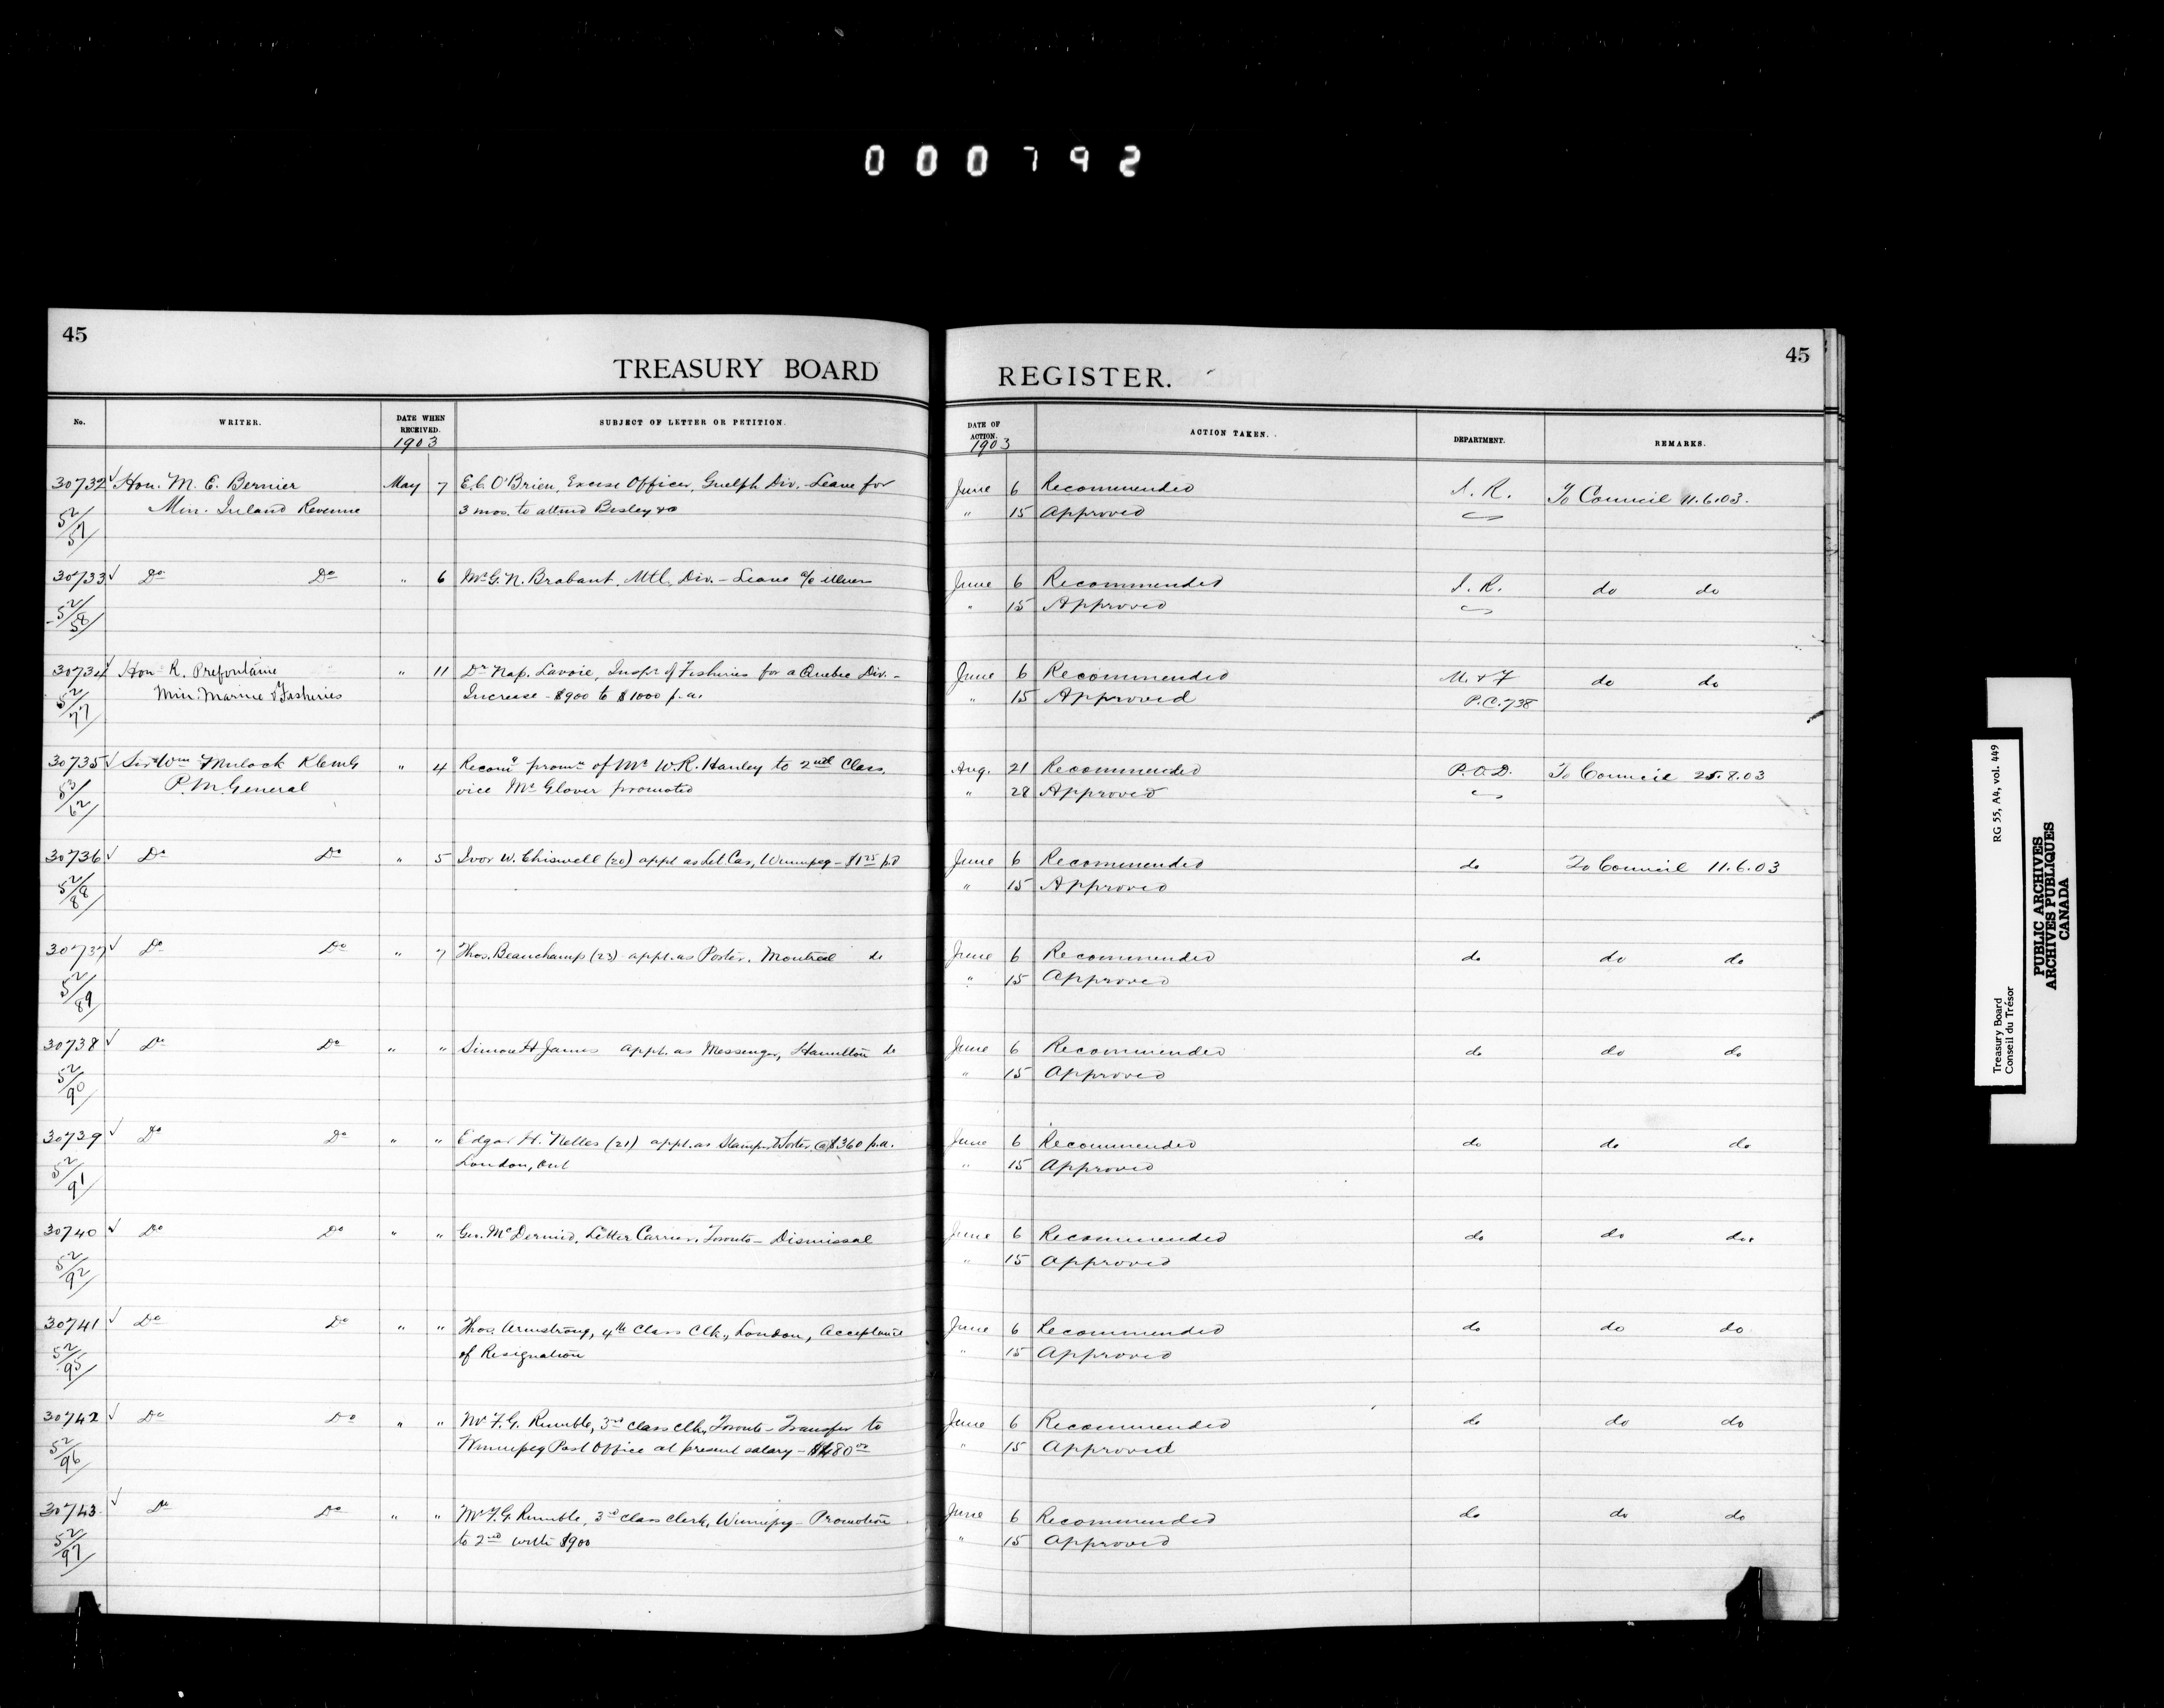 000792
45
TREASURY BOARD
REGISTER.
45
No. WRITER. DATE WHEN RECEIVED. 1903 SUBJECT OF LETTER OR PETITION. DATE OF ACTION. 1903 ACTION TAKEN. DEPARTMENT. REMARKS.
30732 ✓ Hon. M. E. Bernier May 7 E.C. O'Brien, Excise Officer, Guelph Div. - Leave for June 6 Recommended I. R. To Council 11.6.03.
52/57 Min. Inland Revenue 3 mos. to attend Bisley &c " 15 Approved
30733 ✓ Do Do " 6 Mr G. N. Brabant, Mtl. Div. - Leave a/c illness June 6 Recommended I. R. do do
52/58 " 15 Approved
30734 ✓ Hon R. Prefontaine " 11 Dr Nap. Lavoie, Inspr of Fisheries for a Quebec Div. - June 6 Recommended M. & F do do
52/77 Min. Marine & Fisheries Increase - $900 to $1000 p.a. " 15 Approved P.C. 738
30735 ✓ Sir Wm Mulock K.C.M.G " 4 Recomd promn of Mr W.R. Hanley to 2nd Class, Aug. 21 Recommended P.O.D. To Council 25.8.03
53/62 P.M. General vice Mr Glover promoted " 28 Approved
30736 ✓ Do Do " 5 Ivor W. Chiswell (20) appt as Let Car, Winnipeg - $1.25 p.d June 6 Recommended do To Council 11.6.03
52/88 " 15 Approved
30737 ✓ Do Do " 7 Thos. Beauchamp (23) appt. as Porter. Montreal do June 6 Recommended do do do
52/89 " 15 Approved
30738 ✓ Do Do " " Simon H James appt. as Messenger, Hamilton do June 6 Recommended do do do
52/90 " 15 Approved
30739 ✓ Do Do " " Edgar H. Nelles (21) appt. as Stamper & Sorter @ $360 p.a. June 6 Recommended do do do
52/91 London, Ont " 15 Approved
30740 ✓ Do Do " " Geo. McDermid, Letter Carrier, Toronto - Dismissal June 6 Recommended do do do.
52/92 " 15 Approved
30741 ✓ Do Do " " Thos. Armstrong, 4th Class Clk., London, Acceptance June 6 Recommended do do do
52/95 of Resignation " 15 Approved
30742 ✓ Do Do " " Mr F. G. Rumble, 3rd Class Clk, Toronto - Transfer to June 6 Recommended do do do
52/96 Winnipeg Post Office at present salary - $480.00 " 15 Approved
30743 ✓ Do Do " " Mr F. G. Rumble, 3rd Class Clerk, Winnipeg - Promotion June 6 Recommended do do do
52/97 to 2nd with $900 " 15 Approved
Treasury Board RG 55, A4, vol. 449
Conseil du Trésor
PUBLIC ARCHIVES
ARCHIVES PUBLIQUES
CANADA